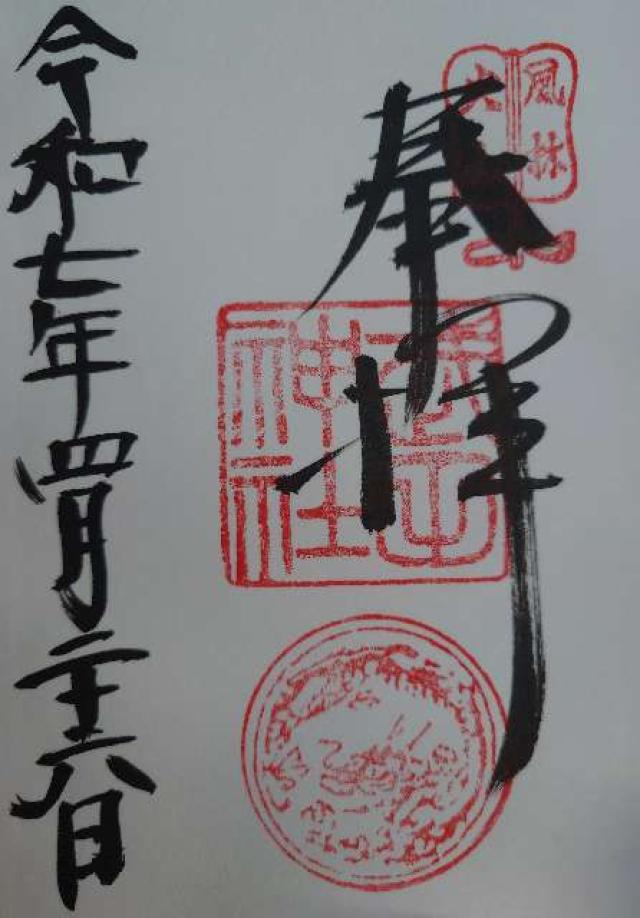 風林
火山
奉拝
神社
令和七年四月二十六日